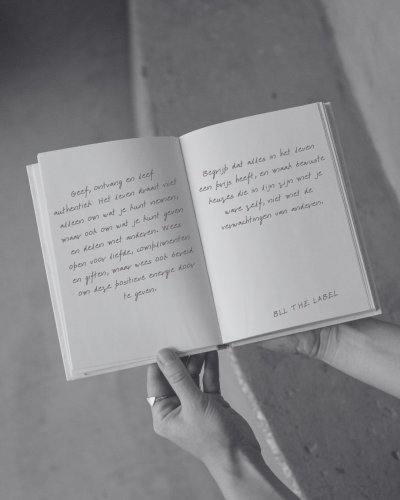 Geef, ontvang en leef
authentiek. Het leven draait niet
alleen om wat je kunt nemen,
maar ook om wat je kunt geven
en delen met anderen. Wees
open voor liefde, complimenten
en giften, maar wees ook bereid
om deze positieve energie door
te geven.
Begrijp dat alles in het leven
een prijs heeft, en maak bewuste
keuzes die in lijn zijn met je
ware zelf, niet met de
verwachtingen van anderen.
BLL THE LABEL